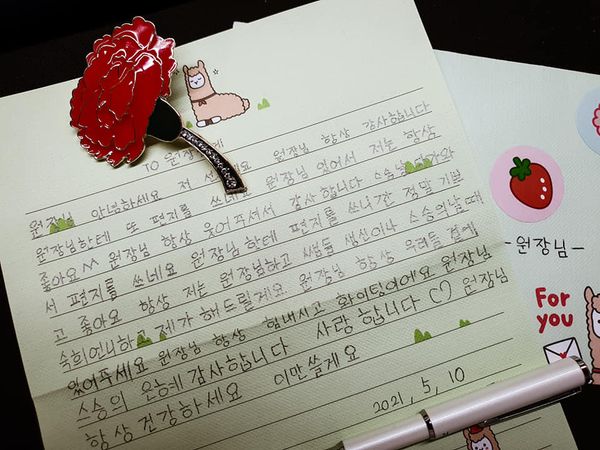 TO 원장님께
원장님 안녕하세요 저 요 원장님 항상 감사합니다
원장님한테 또 편지를 쓰네요 원장님 있어서 저는 항상
좋아요^^ 원장님 항상 웃어주셔서 감사합니다 스승날 다가와
서 편지를 쓰네요 원장님 한테 편지를 쓰니깐 정말 기쁘
고 좋아요 항상 저는 원장님하고 쌤들 생신이나 스승의날때
숙희언니하고 제가 해드릴게요 원장님 항상 우리들 곁에
있어주세요 원장님 항상 힘내시고 화이팅이에요 원장님
스승의 은혜 감사합니다 사랑합니다 원장님
항상 건강하세요 이만쓸게요
2021, 5, 10
-원장님-
For
you